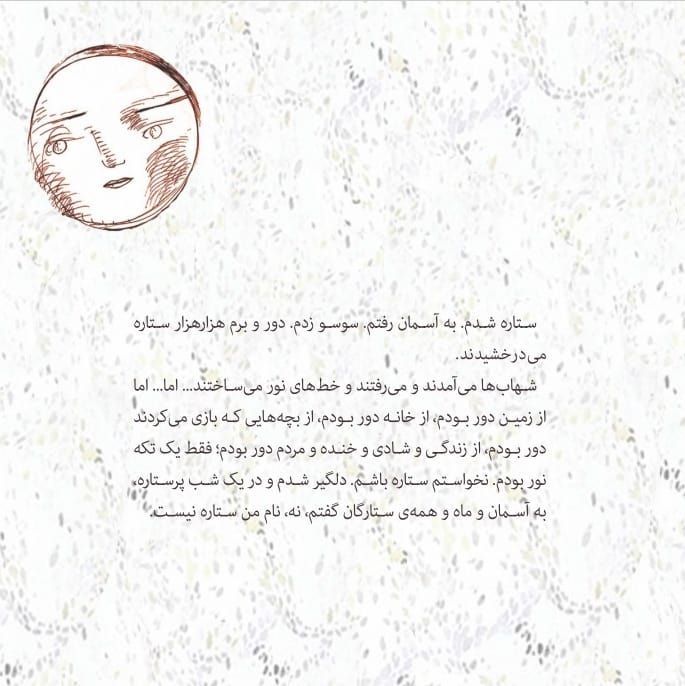 ستاره شدم. به آسمان رفتم. سوسو زدم. دور و برم هزارهزار ستاره
می‌درخشیدند.
شهاب‌ها می‌آمدند و می‌رفتند و خط‌های نور می‌ساختند... اما... اما
از زمین دور بودم، از خانه دور بودم، از بچه‌هایی که بازی می‌کردند
دور بودم، از زندگی و شادی و خنده و مردم دور بودم؛ فقط یک تکه
نور بودم. نخواستم ستاره باشم. دلگیر شدم و در یک شب پرستاره،
به آسمان و ماه و همه‌ی ستارگان گفتم، نه، نام من ستاره نیست.